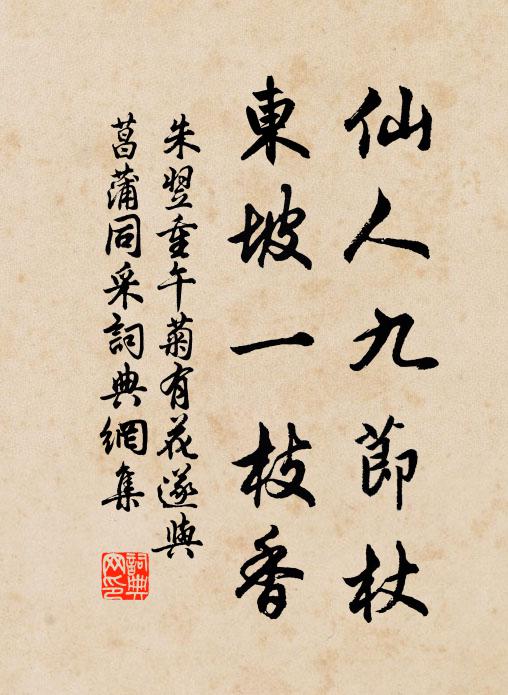 仙人九節杖
東坡一枝香
朱翌重午菊有花遂與
菖蒲同采詞典網集
詞典
网印